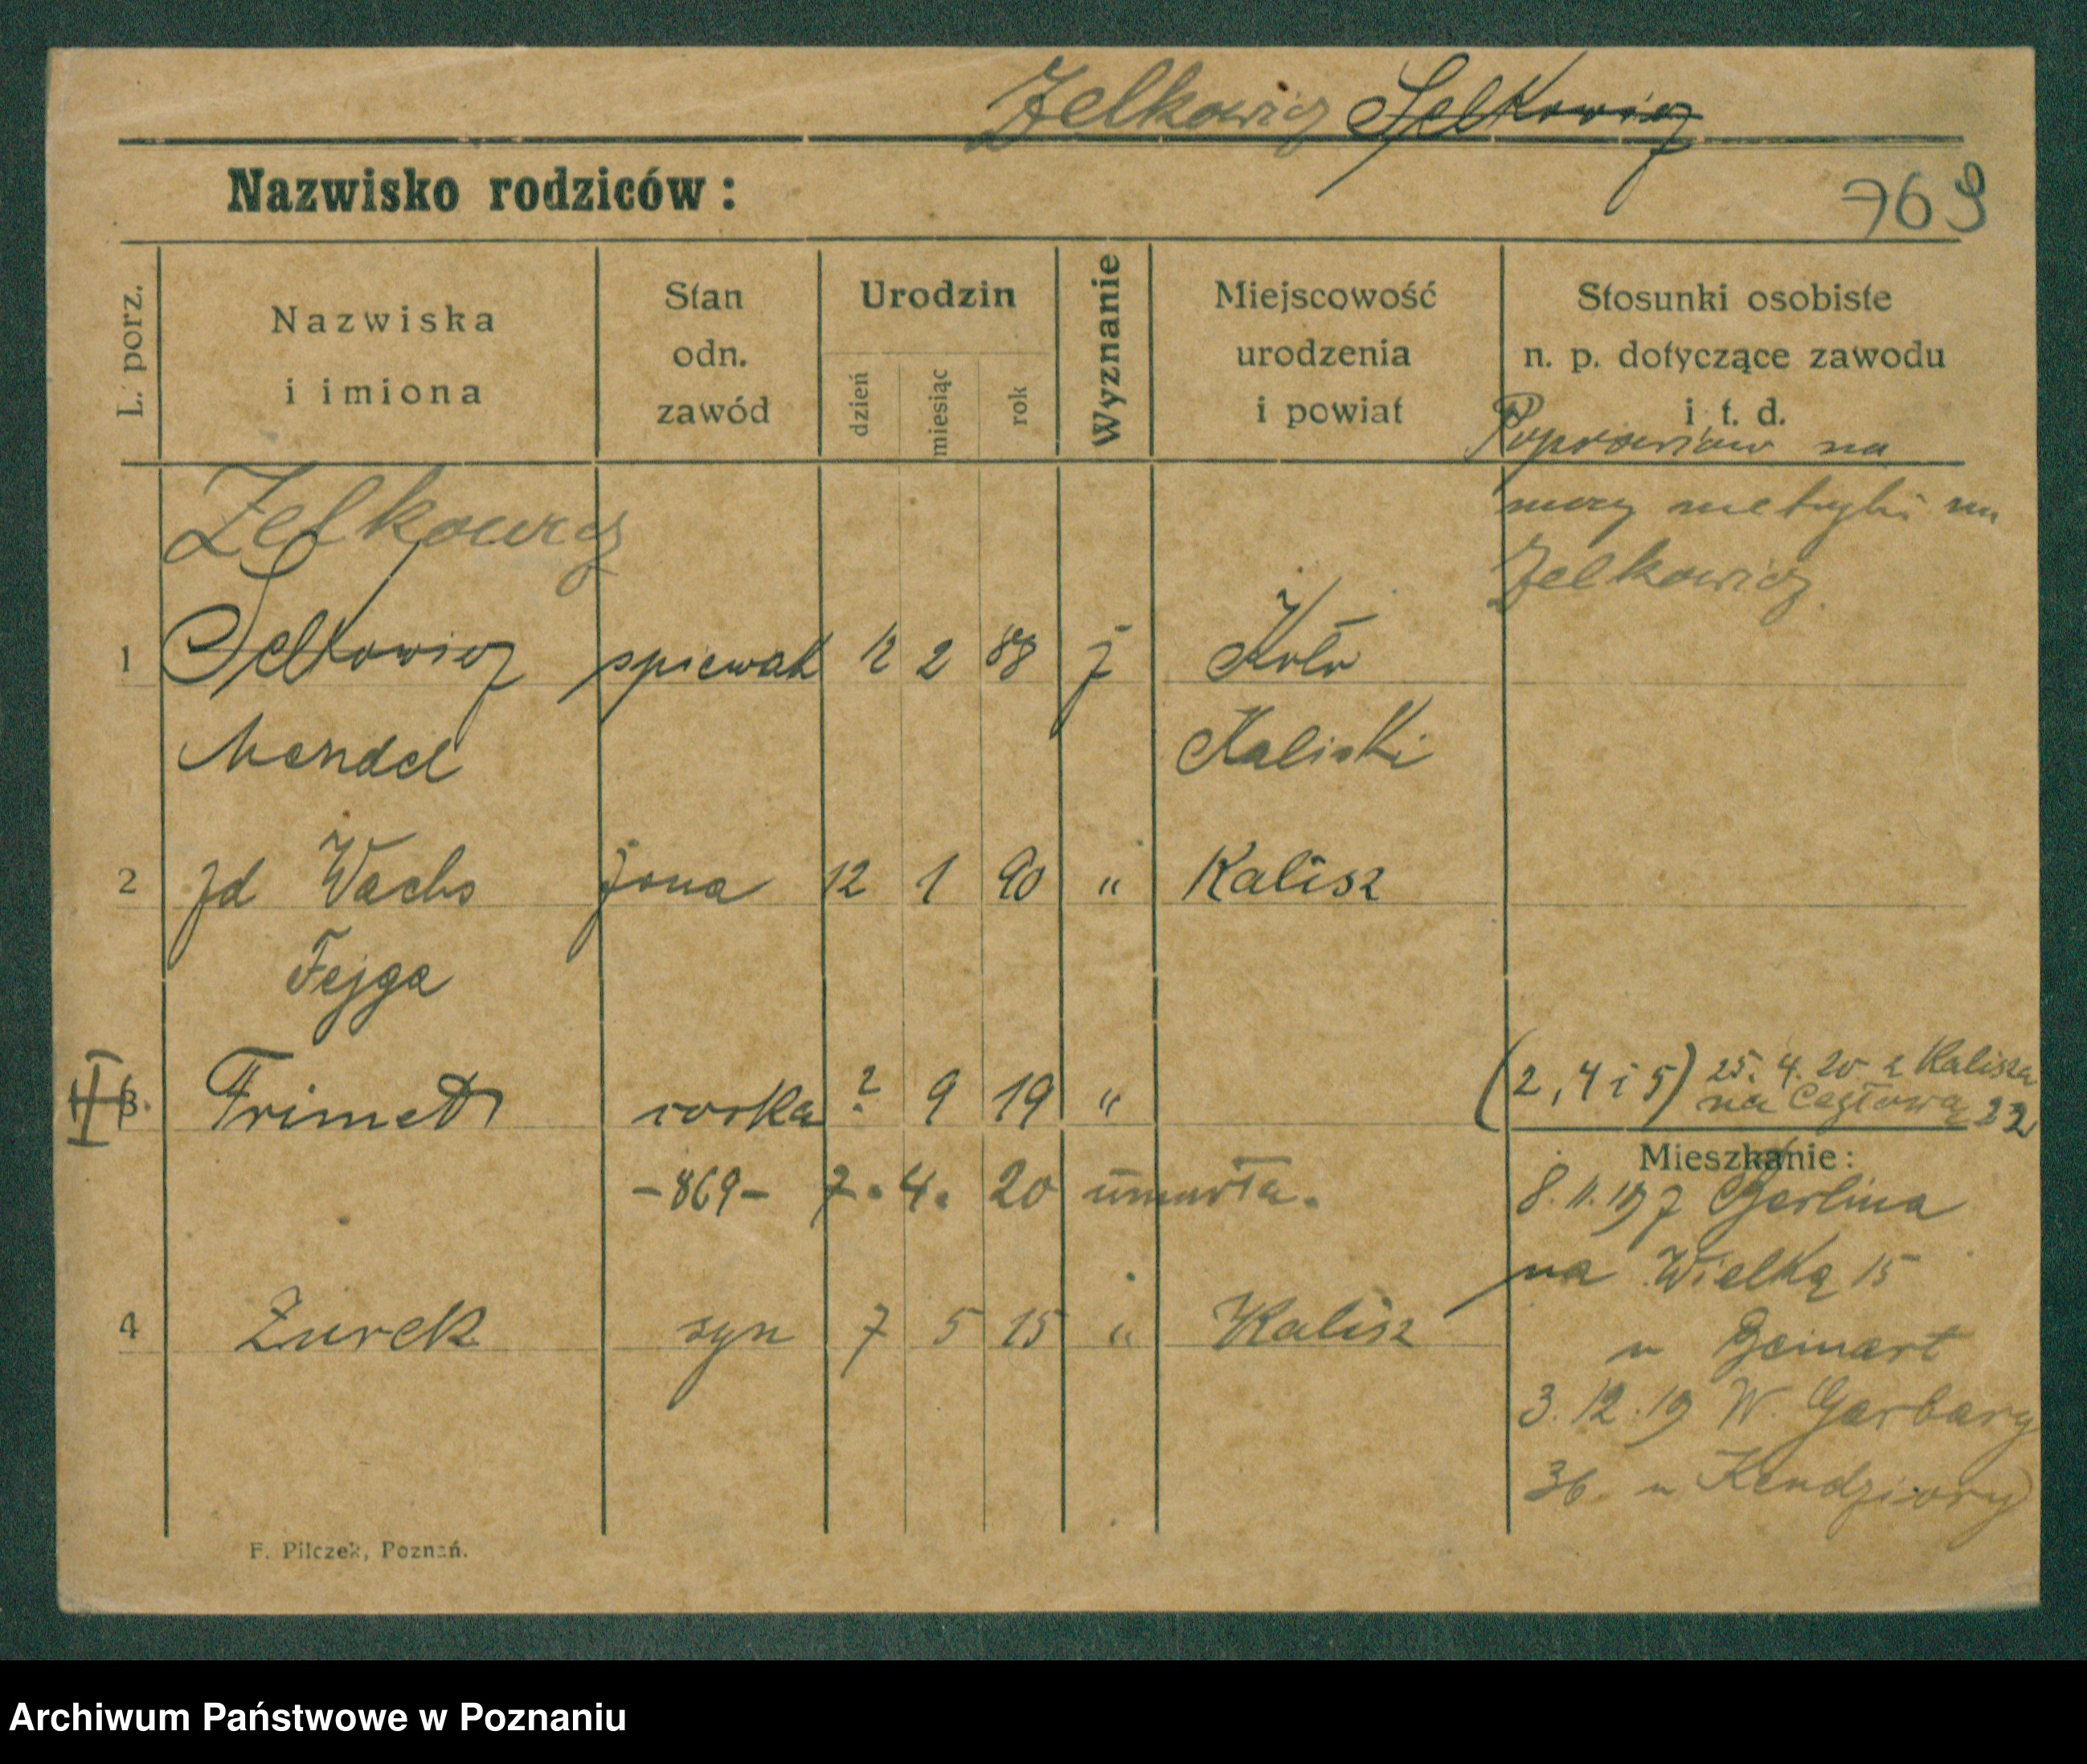 Zelkowicz Selkowicz
Nazwisko rodziców:
769
L. porz.
Nazwiska
i imiona
Stan
odn.
zawód
Urodzin
dzień
miesiąc
rok
Wyznanie
Miejscowość
urodzenia
i powiat
Stosunki osobiste
n. p. dotyczące zawodu
i t. d.
na
mocy metryki na
Zelkowicz
Zelkowicz
1 Selkowicz spiewak 12 2 88 j Koło
Mendel Kaliski
2 Wachs żona 12 1 90 " Kalisz
Fejga
3. Frimett corka ? 9 19 "
(2, 4 i 5) 25. 4. 20 z Kalisza
na Ceglową 22
Mieszkanie:
-869- 7. 4. 20 umarła.
8. 11. 19 z Berlina
na Wielką 15
4 Żurek syn 7 5 15 " Kalisz
u Beinart
3. 12. 19 W. Garbary
36 u Kendziory
F. Pilczek, Poznań.
Archiwum Państwowe w Poznaniu